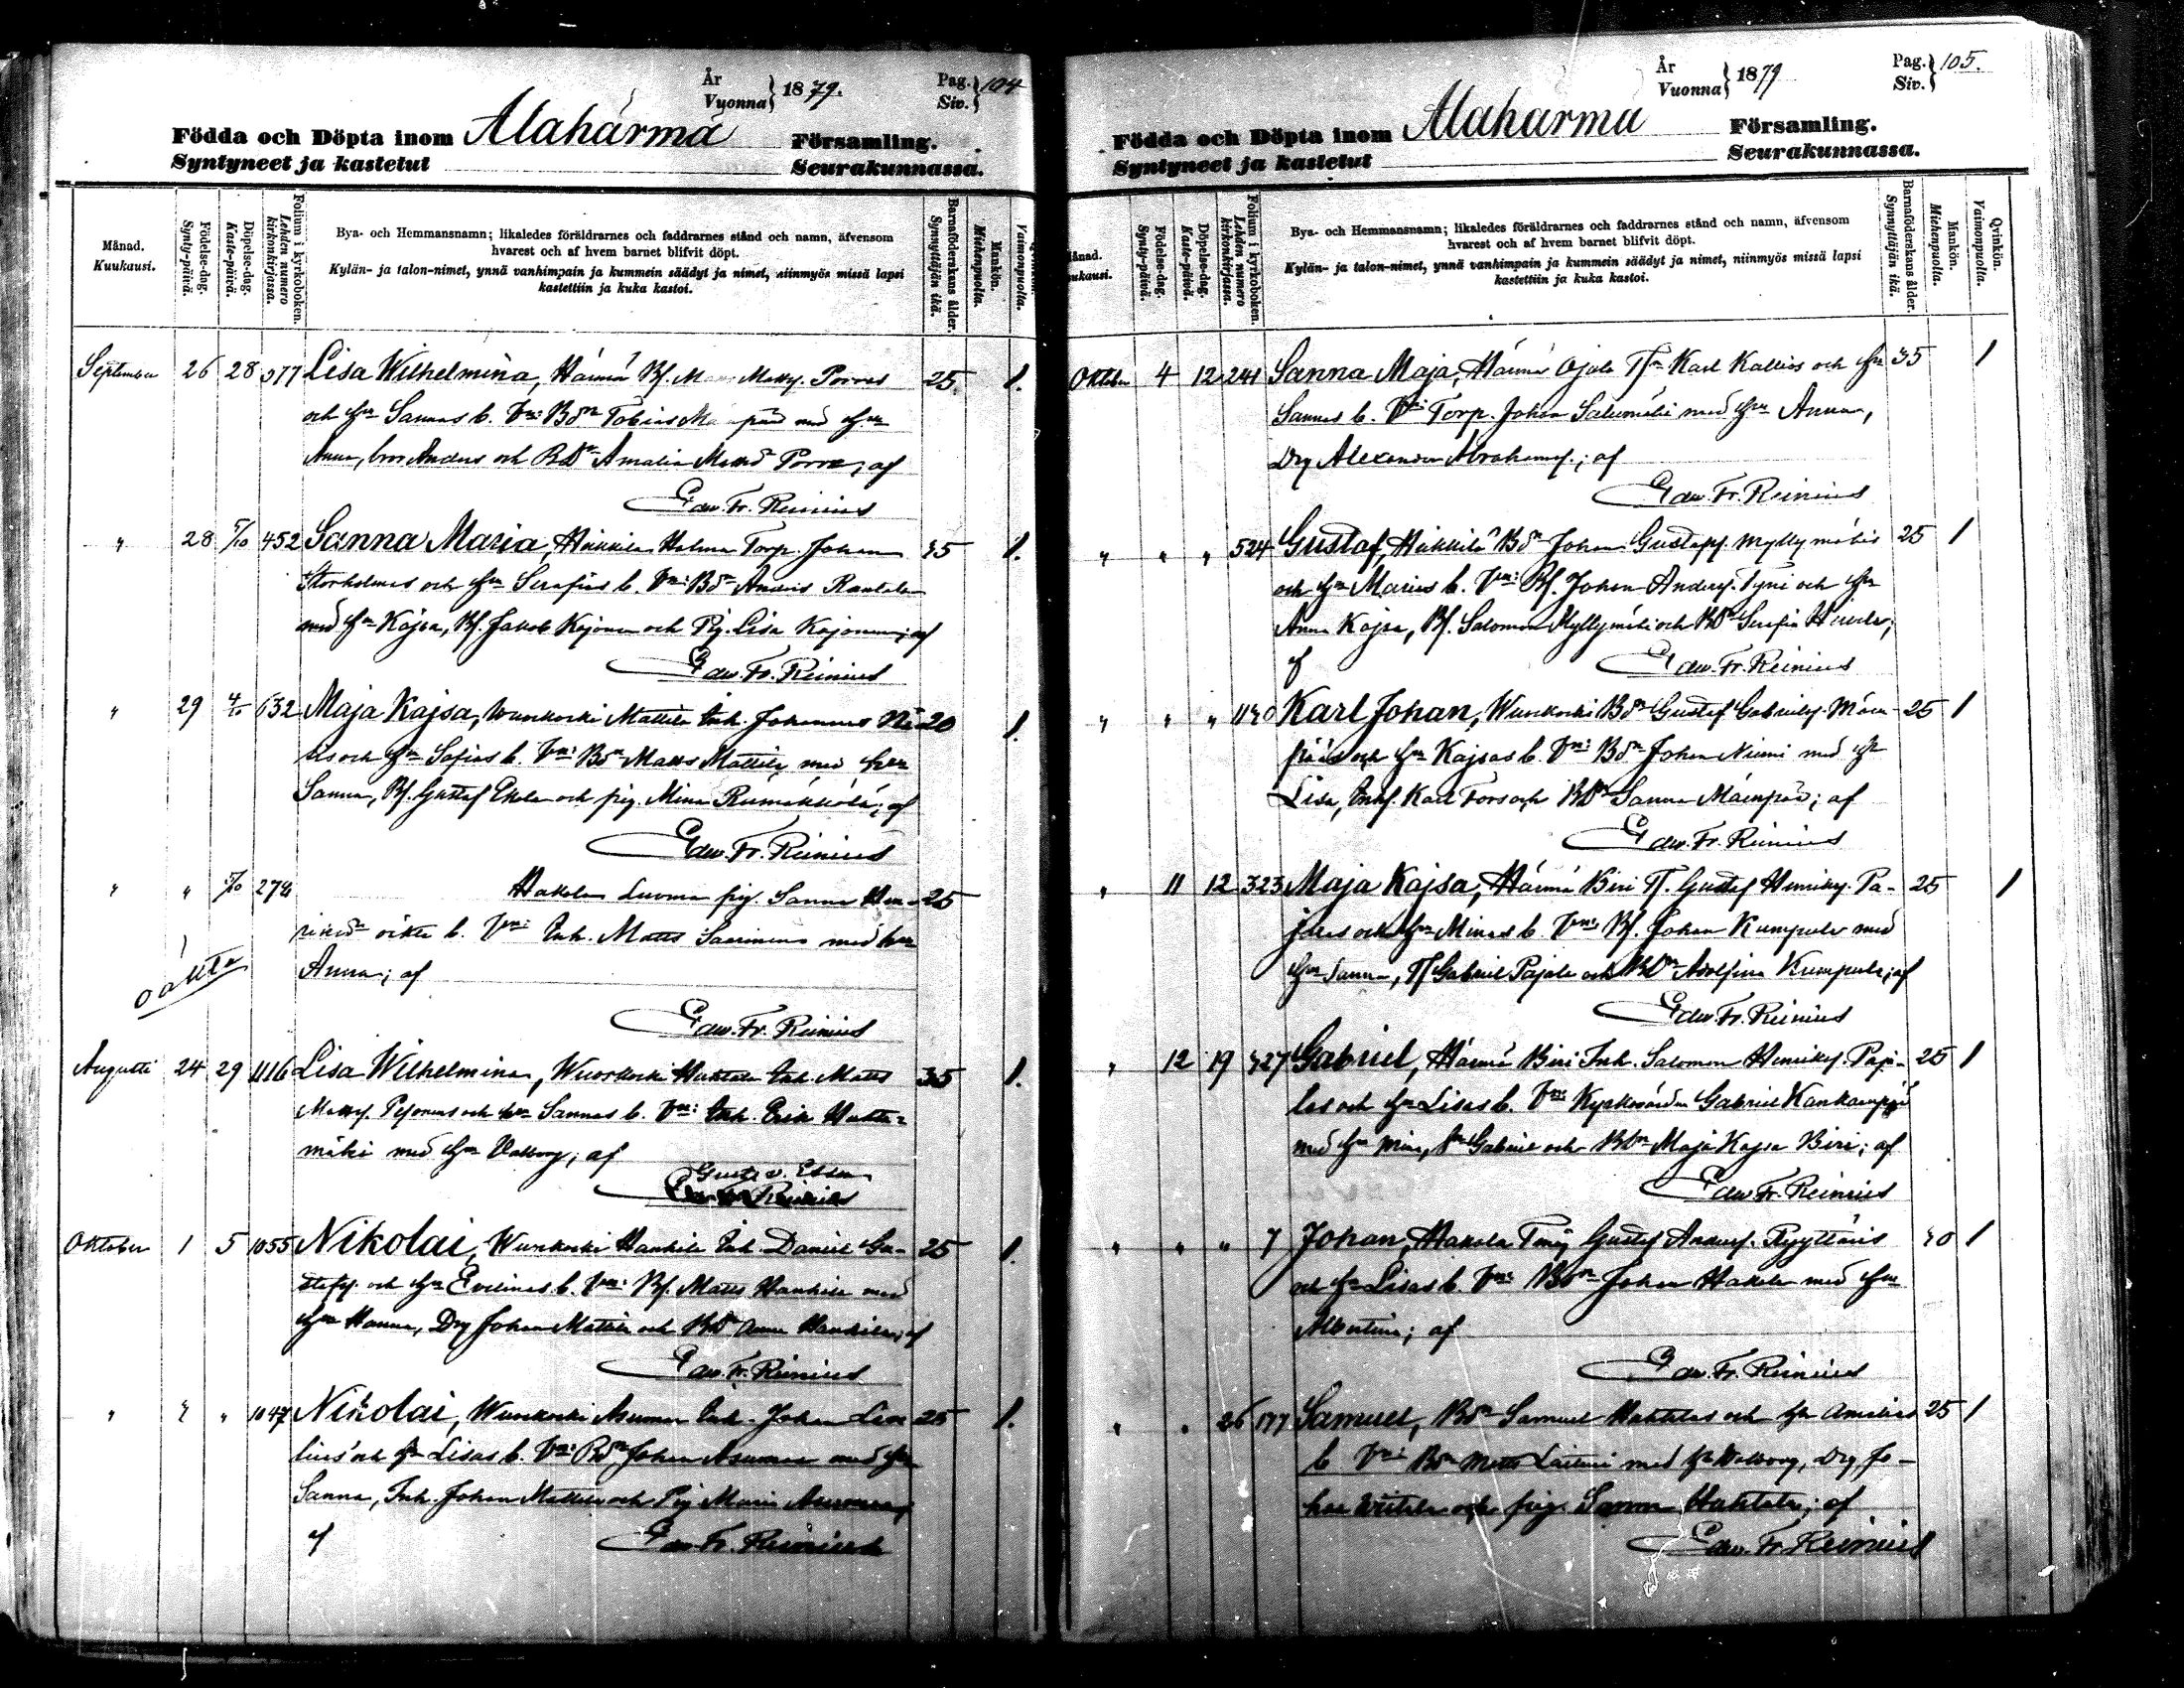 År
Vuonna } 1879.
Pag.
Siv. } 104
Födda och Döpta inom Alahärmä Församling.
Syntyneet ja kastetut Seurakunnassa.
Månad.
Kuukausi.
Födelse-dag.
Synty-päivä.
Döpelse-dag.
Kaste-päivä.
Folium i kyrkoboken.
Lehden numero kirkonkirjassa.
Bya- och Hemmansnamn; likaledes föräldrarnes och faddrarnes stånd och namn, äfvensom
hvarest och af hvem barnet blifvit döpt.
Kylän- ja talon-nimet, ynnä vanhimpain ja kummein säädyt ja nimet, niinmyös missä lapsi
kastettiin ja kuka kastoi.
Barnaföderskans ålder.
Synnyttäjän ikä.
Mankön.
Miehenpuolta.
Vaimonpuolta.
September 26 28 377 Lisa Wilhelmina, Härmä Bf. Matts. Porras 25 1.
och hu Sannas b. Vn: Bdn Tobias med hu
Anna, bror Anders och BDr Amalia Porre; af
Edw. Fr. Reinius
" 28 5/10 452 Sanna Maria, Hakkila Holma Torp. Johan 1.
Storholmas och hu Serafias b. Vn: Bdn Anders Rantala
med hu Kajsa, Bf. Jakob Kojonen och Pig. Lisa Kojonen; af
Edw. Fr. Reinius
" 29 632 Maja Kajsa, Wuoskoski Mattila Inh. Johannes 20 1.
och hu Sofias b. Vn: Bdn Matts Mattila med hu
Sanna, Bf. Gustaf Ekola och pig. Mina Rumakkola; af
Edw. Fr. Reinius
" " 5/10 274 Hakola Luoma pig. Sanna Hen- 25
oäkta b. Vn: Inh. Matts Saarinens med hu
oäkta
Anna; af
Edw. Fr. Reinius
Augusti 24 29 1116 Lisa Wilhelmina, Wuoskoski Inh. Matts 35 1.
Matts. och hu Sannas b. Vn: Inh. Erik
mäki med hu Valborg; af
Gust. v. Essen
Oktober 1 5 1055 Nikolai, Wuoskoski Hanhila Inh. Daniel Gu- 25 1.
stafs. och hu Evelinas b. Vn: Bf. Matts Hanhila med
hu Hanna, Drg Johan Mattila och BDr Anna Hanhila; af
Edw. Fr. Reinius
" " " 1047 Nikolai, Wuoskoski Asunmaa Inh. Johan 25 1.
och hu Lisas b. Vn: Bdn Johan Asunmaa med hu
Sanna, Inh. Johan Mattila och Pig Maria
af Edw. Fr. Reinius
År
Vuonna } 1879
Pag.
Siv. } 105.
Födda och Döpta inom Alahärmä Församling.
Syntyneet ja kastetut Seurakunnassa.
Månad.
Kuukausi.
Födelse-dag.
Synty-päivä.
Döpelse-dag.
Kaste-päivä.
Folium i kyrkoboken.
Lehden numero kirkonkirjassa.
Bya- och Hemmansnamn; likaledes föräldrarnes och faddrarnes stånd och namn, äfvensom
hvarest och af hvem barnet blifvit döpt.
Kylän- ja talon-nimet, ynnä vanhimpain ja kummein säädyt ja nimet, niinmyös missä lapsi
kastettiin ja kuka kastoi.
Barnaföderskans ålder.
Synnyttäjän ikä.
Mankön.
Miehenpuolta.
Qvinkön.
Vaimonpuolta.
Oktober 4 12 241 Sanna Maja, Härmä Ojala Karl Kallios och hu 35 1
Sannas b. Vn: Torp. Johan Salumäki med hu Anna,
Drg Alexander Abrahams.; af
Edw. Fr. Reinius
" " " 524 Gustaf, Hakkila Bdn Johan Gustafs. Myllymäkis 25 1
och hu Marias b. Vn: Bf. Johan Anders. Tyni och hu
Anna Kajsa, Bf. Salomon Myllymäki och BDr Serafia
af Edw. Fr. Reinius
" " " 1140 Karl Johan, Wuoskoski Bdn Gustaf Gabriels. Mäen- 25 1
pääs och hu Kajsas b. Vn: Bdn Johan Niemi med hu
Lisa, Inh. Karl Fors och BDr Sanna Mäenpää; af
Edw. Fr. Reinius
" 11 12 323 Maja Kajsa, Härmä Biri Tf. Gustaf Henriks. Pa- 25 1
jalas och hu Minas b. Vn: Bf. Johan Kumpula med
hu Sanna, Tf Gabriel Pajala och BDr Adolfina Kumpula; af
Edw. Fr. Reinius
" 12 19 427 Gabriel, Härmä Biri Inh. Salomon Henriks. Paja- 25 1
las och hu Lisas b. Vn: Kyrkovärden Gabriel Kankaanpää
med hu Mina, Gabriel och BDr Maja Kajsa Biri; af
Edw. Fr. Reinius
" " " 7 Johan, Hakola Gustaf Anders. Pyyttäris 40 1
och hu Lisas b. Vn: Bdn Johan Hakola med hu
Albertina; af
Edw. Fr. Reinius
" " 26 177 Samuel, Bdn Samuel Hahtolas och hu Amalias 25 1
b. Vn: Bdn Matts med hu Valborg, Drg Jo-
han och pig. Sanna Hahtola; af
Edw. Fr. Reinius